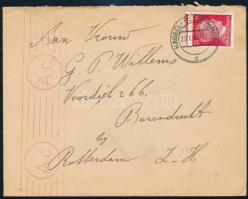 Aan Vrouw
G. P. Willems
Voordijk 266.
Barendrecht
bij
Rotterdam Z-H
Ac
Ac